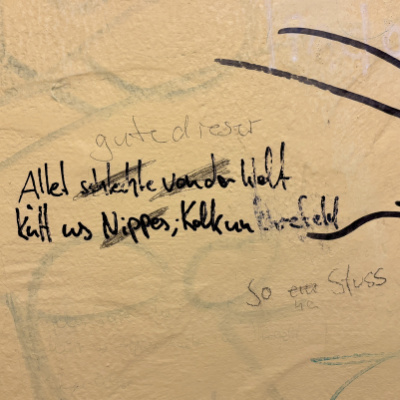 gute dieser
Allet schlechte von der Welt
kütt us Nippes, Kalk un Ehrefeld
So Stuss